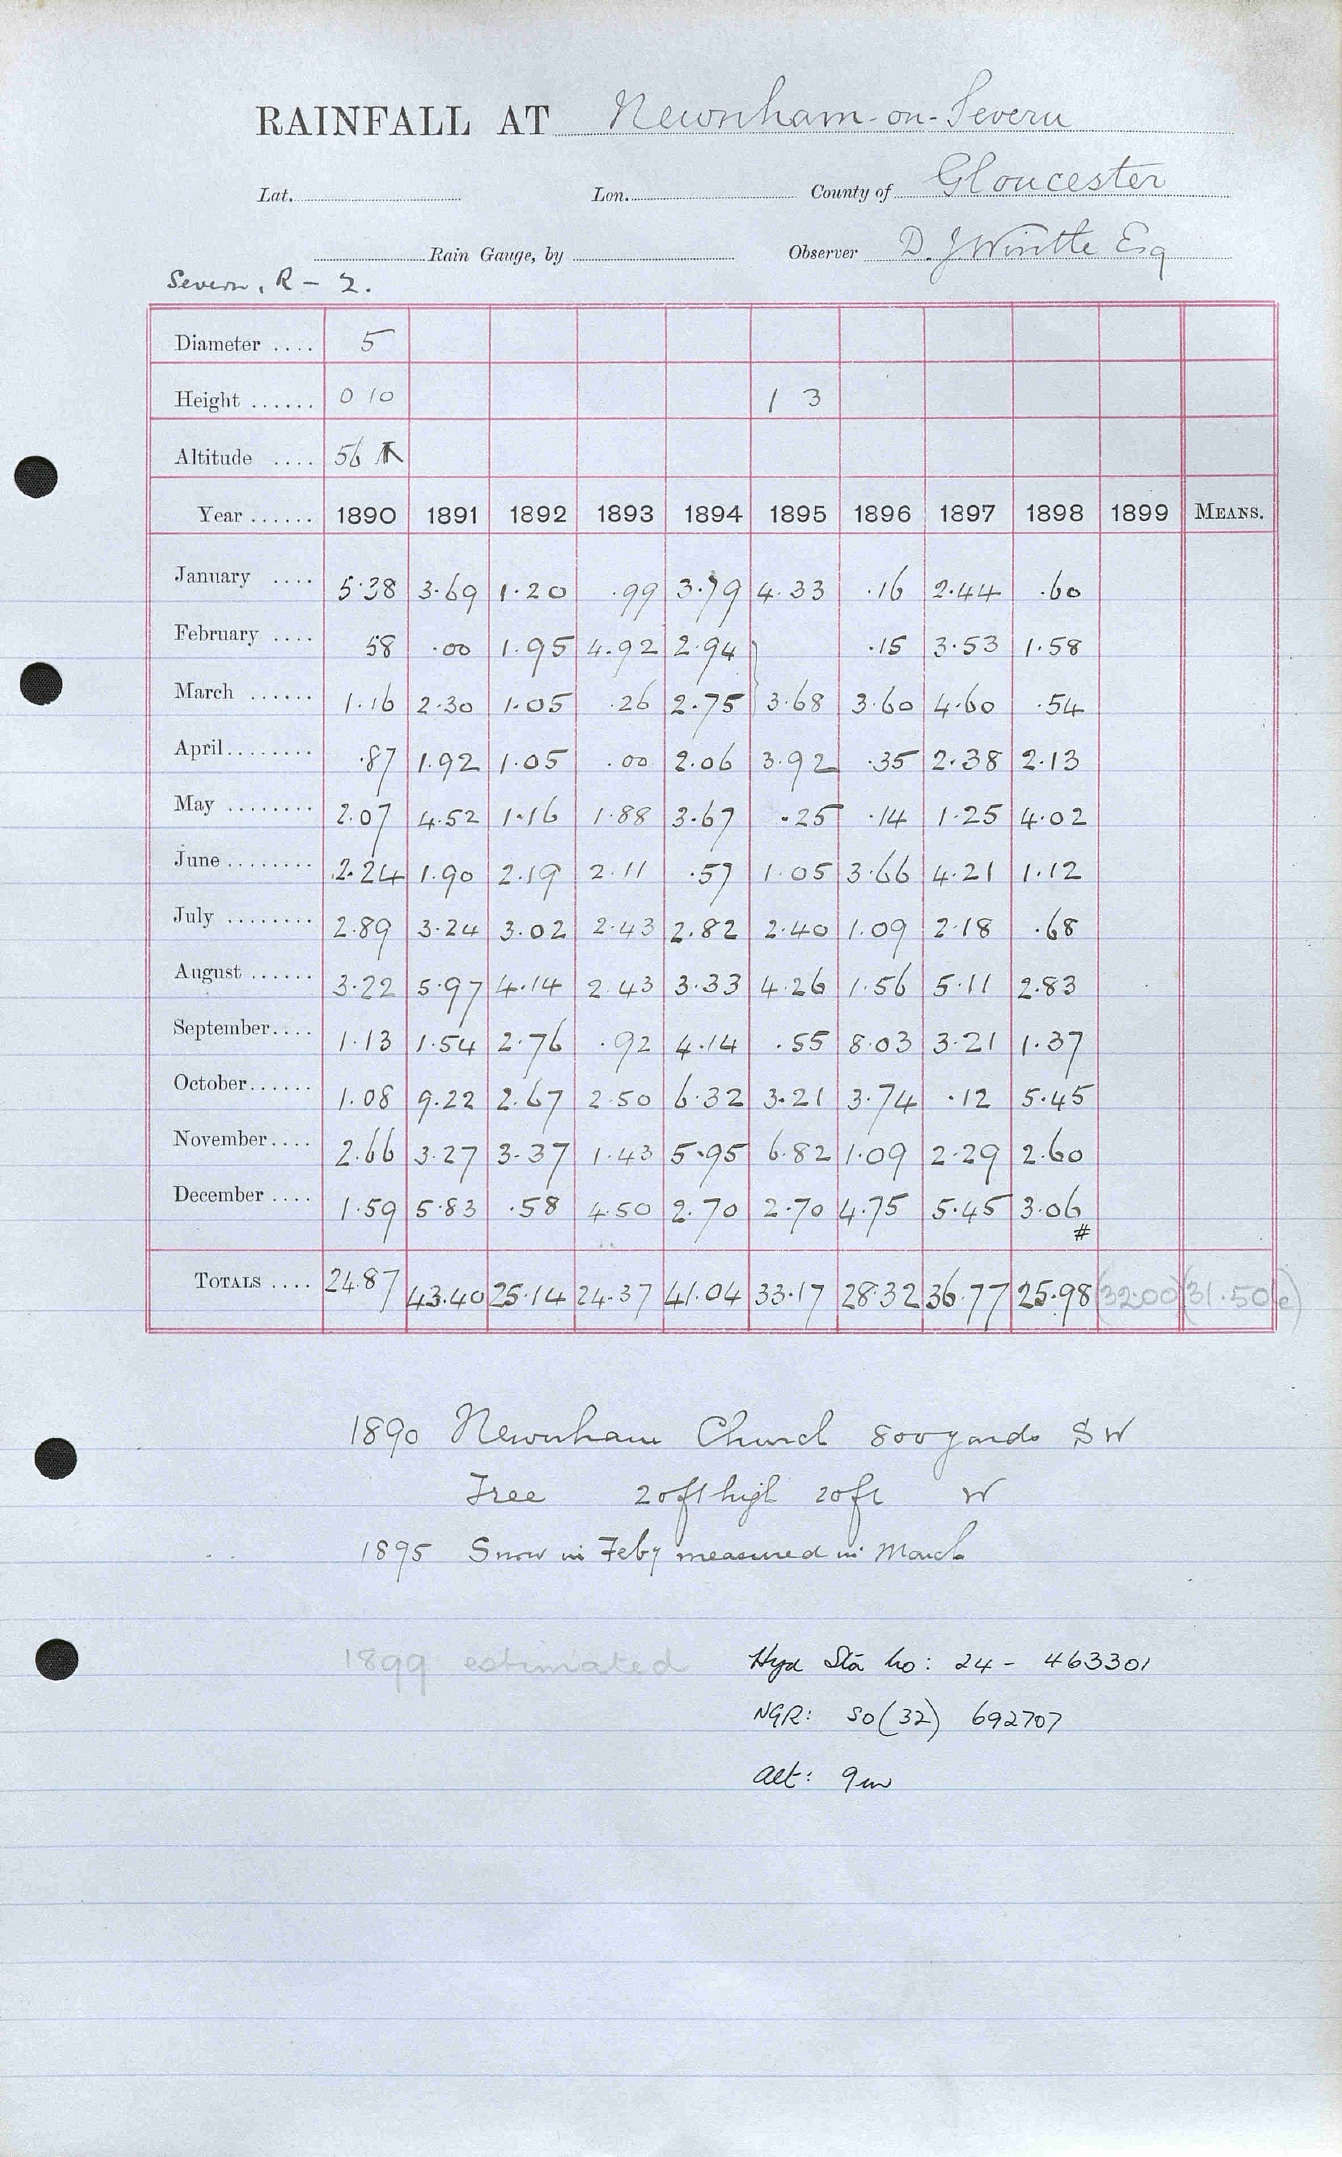 RAINFALL AT Newnham-on-Severn
Lat. Lon. County of Gloucester
Rain Gauge, by Observer D. J Wintle Esq
Severn, R - 2.
Diameter .... 5
Height ...... 0 10 1 3
Altitude .... 56
Year ...... 1890 1891 1892 1893 1894 1895 1896 1897 1898 1899 MEANS.
January .... 5.38 3.69 1.20 .99 3.79 4.33 .16 2.44 .60
February .... 58 .00 1.95 4.92 2.94 } .15 3.53 1.58
March ...... 1.16 2.30 1.05 .26 2.75 3.68 3.60 4.60 .54
April........ .87 1.92 1.05 .00 2.06 3.92 .35 2.38 2.13
May ........ 2.07 4.52 1.16 1.88 3.67 .25 .14 1.25 4.02
June ........ 2.24 1.90 2.19 2.11 .57 1.05 3.66 4.21 1.12
July ........ 2.89 3.24 3.02 2.43 2.82 2.40 1.09 2.18 .68
August ...... 3.22 5.97 4.14 2.43 3.33 4.26 1.56 5.11 2.83
September.... 1.13 1.54 2.76 .92 4.14 .55 8.03 3.21 1.37
October...... 1.08 9.22 2.67 2.50 6.32 3.21 3.74 .12 5.45
November.... 2.66 3.27 3.37 1.43 5.95 6.82 1.09 2.29 2.60
December .... 1.59 5.83 .58 4.50 2.70 2.70 4.75 5.45 3.06
#
TOTALS .... 24.87 43.40 25.14 24.37 41.04 33.17 28.32 36.77 25.98 (32.00) (31.50e)
1890 Newnham Church 800 yards SW
Tree 20ft high 20ft W
1895 Snow in Feby measured in March
1899 estimated
Hyd Sta no: 24 - 463301
NGR: SO(32) 692707
Alt: 9m